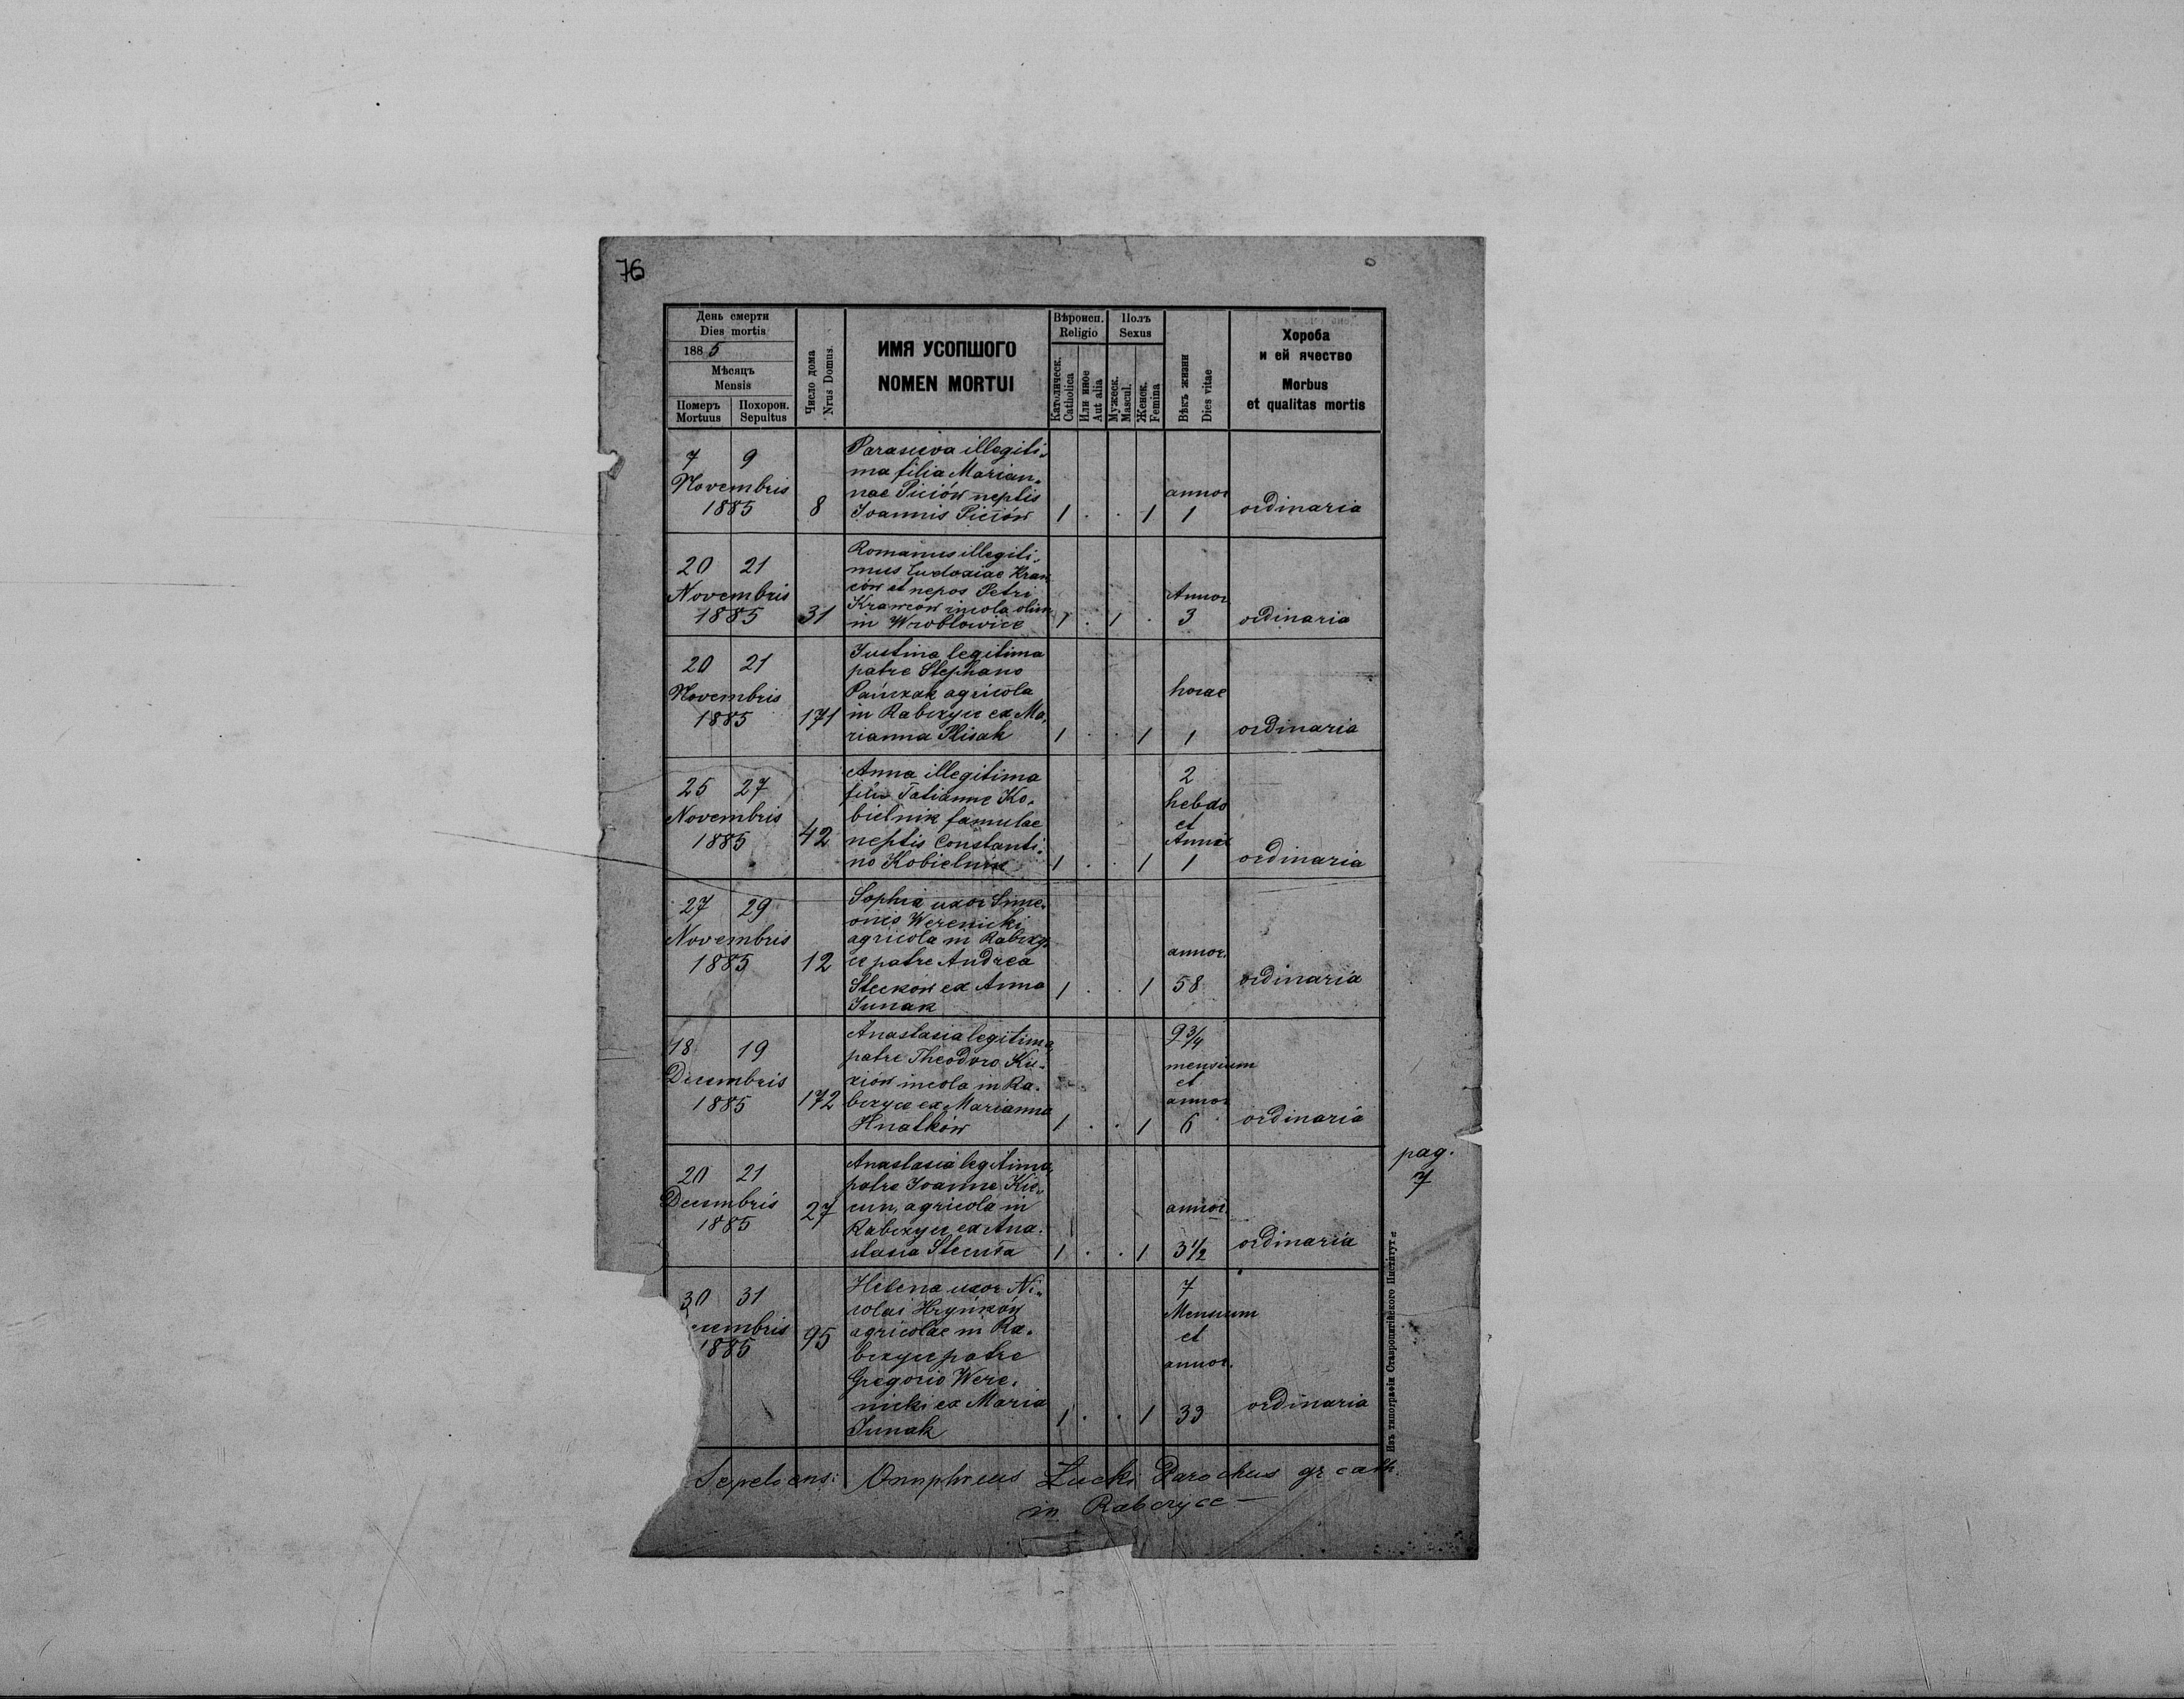 76
День смерти
Dies mortis
1885
Мѣсяцъ
Mensis
Померъ Mortuus
Похорон. Sepultus
Число дома
Nrus Domus.
ИМЯ УСОПШОГО
NOMEN MORTUI
Вѣроисп.
Religio
Католическ.
Catholica
Или иное
Aut alia
Полъ
Sexus
Мужеск.
Mascul.
Женск.
Femina
Вѣкъ жизни
Dies vitae
Хороба
и ей ячество
Morbus
et qualitas mortis
7 9
Novembris
1885
8
illegiti-
ma filia Marian-
nae Piciów neptis
Joannis Piciów
1 . . 1
annor
1
ordinaria
20 21
Novembris
1885
31
Romanus illegiti-
mus Eudoxiae
et nepos Petri
Krawców incola olim
in Wroblowice
1 . 1 .
Annor
3
ordinaria
20 21
Novembris
1885
171
Justina legitima
patre Stephano
Pańczak agricola
in Rabczyce ex Ma-
rianna Plisak
1 . . 1
horae
1
ordinaria
25 27
Novembris
1885
42
Anna illegitima
filia Tatianne Ko-
bielnik famulae
neptis Constanti-
no Kobielnik
1 . . 1
2
hebdo
et
1
ordinaria
27 29
Novembris
1885
12
Sophia uxor Sime-
onis Werenicki
agricola in Rabczy-
ce patre Andrea
Steczków ex Anna
Junak
1 . . 1
annor.
58
ordinaria
18 19
Decembris
1885
172
Anastasia legitima
patre Theodoro Ku-
ziów incola in Ra-
bczyce ex Marianna
Hnatków
1 . . 1
9 3/4
mensium
et
annor
6
ordinaria
20 21
Decembris
1885
27
Anastasia legitima
patre Joanne
agricola in
Rabczyce ex Ana-
stasia
1 . . 1
annor.
3 1/2
ordinaria
30 31
cembris
1885
95
Helena uxor Ni-
colai Hryńków
agricolae in Ra-
bczyce patre
Gregorio Were-
nicki ex Maria
Junak
1 . . 1
7
Mensium
et
annor.
33
ordinaria
pag.
7
Изъ типографіи Ставропигійского Института
Onuphrius Lucki Parochus gr cath.
in Rabczyce